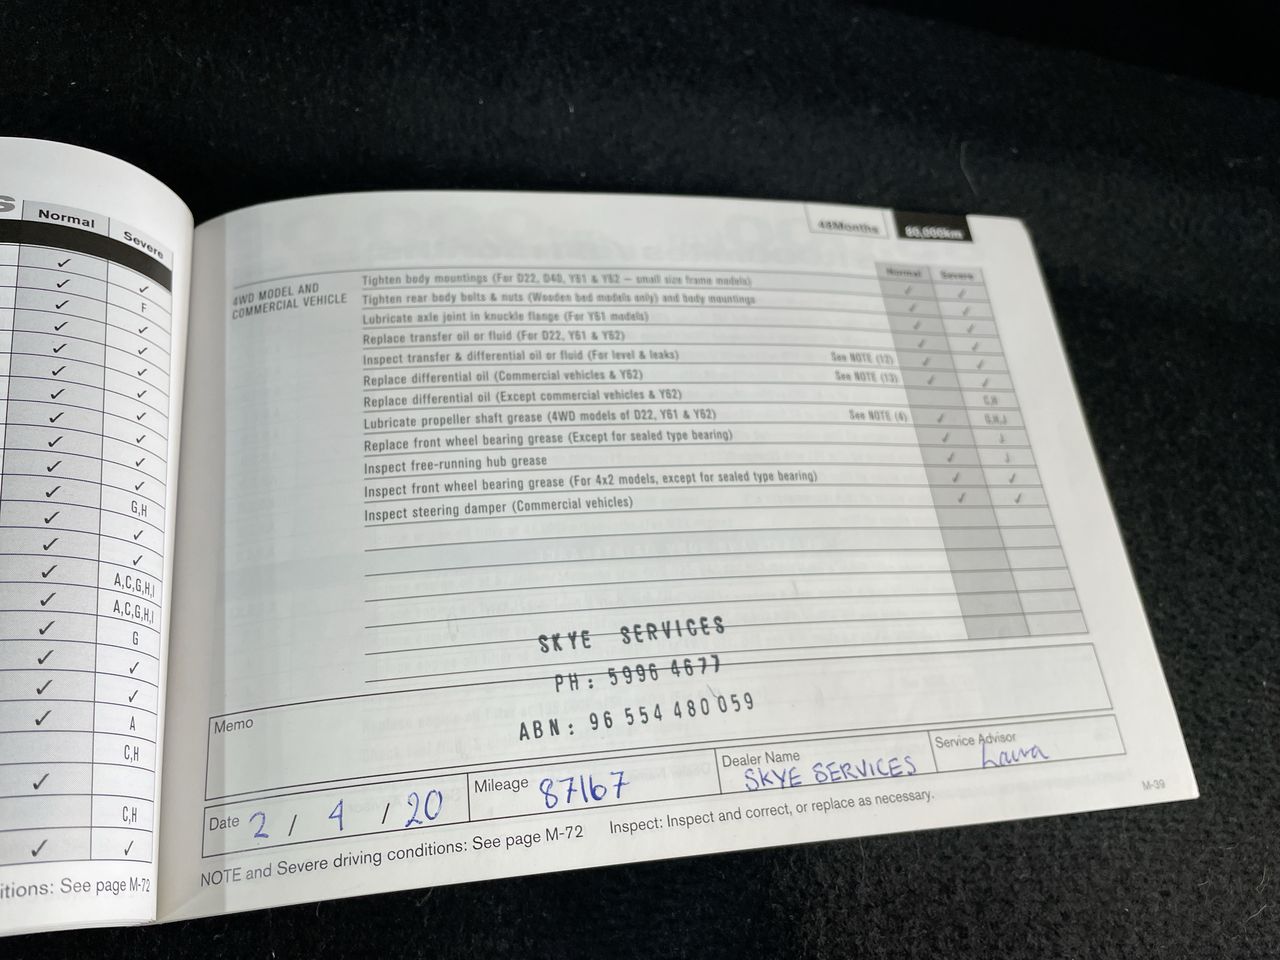 Normal Severe
✓ ✓
✓ F
✓ ✓
✓ ✓
✓ ✓
✓ ✓
✓ ✓
✓ ✓
✓ ✓
✓ G,H
✓ ✓
✓ ✓
✓ A,C,G,H,I
✓ A,C,G,H,I
✓ G
✓ ✓
✓ ✓
✓ A
C,H
✓
C,H
✓ ✓
itions: See page M-72
48Months 80,000km
Normal Severe
4WD MODEL AND
COMMERCIAL VEHICLE
Tighten body mountings (For D22, D40, Y61 & Y62 – small size frame models) ✓ ✓
Tighten rear body bolts & nuts (Wooden bed models only) and body mountings ✓ ✓
Lubricate axle joint in knuckle flange (For Y61 models) ✓ ✓
Replace transfer oil or fluid (For D22, Y61 & Y62) ✓ ✓
Inspect transfer & differential oil or fluid (For level & leaks) See NOTE (12) ✓ ✓
Replace differential oil (Commercial vehicles & Y62) See NOTE (13) ✓ ✓
Replace differential oil (Except commercial vehicles & Y62) G,H
Lubricate propeller shaft grease (4WD models of D22, Y61 & Y62) See NOTE (4) ✓ G,H,J
Replace front wheel bearing grease (Except for sealed type bearing) ✓ J
Inspect free-running hub grease ✓ J
Inspect front wheel bearing grease (For 4x2 models, except for sealed type bearing) ✓ ✓
Inspect steering damper (Commercial vehicles) ✓ ✓
SKYE SERVICES
PH: 5996 4677
ABN: 96 554 480 059
Memo
Date 2 / 4 / 20 Mileage 87167 Dealer Name SKYE SERVICES Service Advisor Laura
NOTE and Severe driving conditions: See page M-72 Inspect: Inspect and correct, or replace as necessary.
M-39